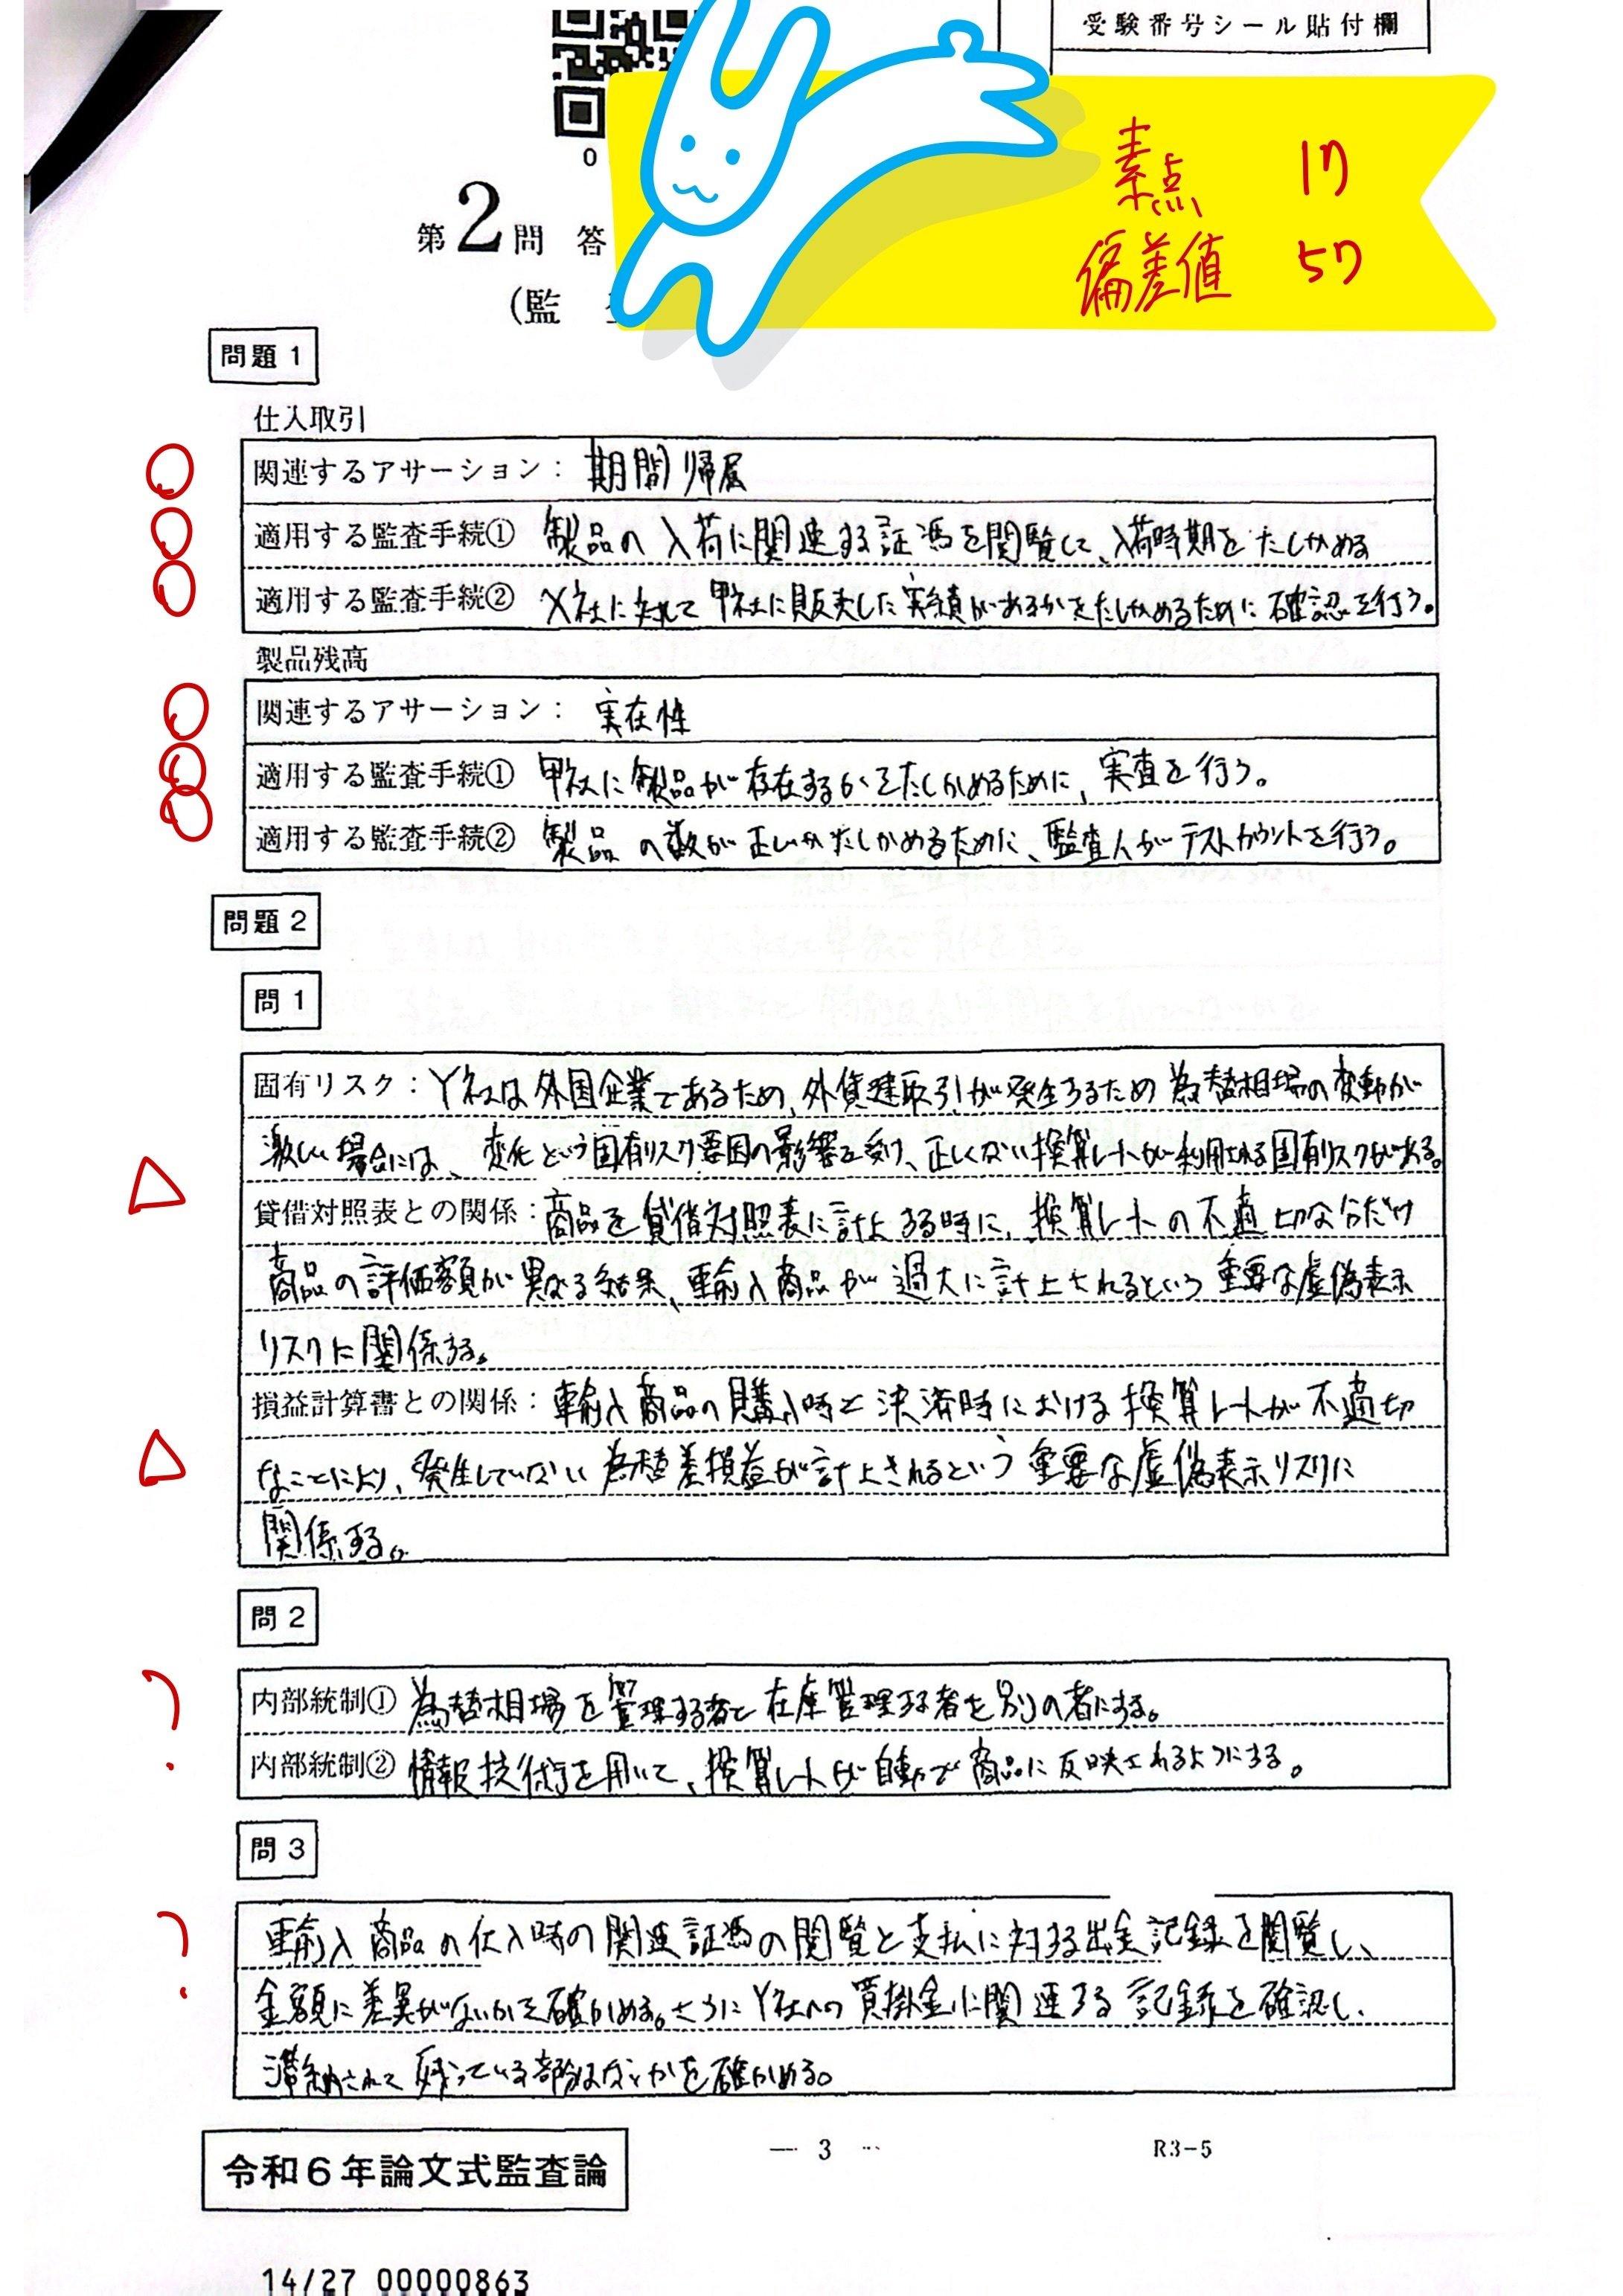 受験番号シール貼付欄
素点 17
偏差値 57
0
第2問 答
(監
問題1
仕入取引
関連するアサーション： 期間帰属
適用する監査手続① 製品の入荷に関連する証憑を閲覧して、入荷時期をたしかめる
適用する監査手続② X社に対して甲社に販売した実績があるかをたしかめるために確認を行う。
製品残高
関連するアサーション： 実在性
適用する監査手続① 甲社に製品が存在するかをたしかめるために、実査を行う。
適用する監査手続② 製品の数が正しいかたしかめるために、監査人がテストカウントを行う。
問題2
問1
固有リスク：Y社は外国企業であるため、外貨建取引が発生するため為替相場の変動が
激しい場合には、変化という固有リスク要因の影響を受け、正しくない換算レートが利用される固有リスクがある。
貸借対照表との関係：商品を貸借対照表に計上する時に、換算レートの不適切な分だけ
商品の評価額が異なる結果、輸入商品が過大に計上されるという重要な虚偽表示
リスクに関係する。
損益計算書との関係：輸入商品の購入時と決済時における換算レートが不適切
なことにより、発生していない為替差損益が計上されるという重要な虚偽表示リスクに
関係する。
問2
内部統制① 為替相場を管理する者と在庫管理する者を別の者にする。
内部統制② 情報技術を用いて、換算レートが自動で商品に反映されるようにする。
問3
輸入商品の仕入時の関連証憑の閲覧と支払に対する出金記録を閲覧し、
金額に差異がないかを確かめる。さらにY社への買掛金に関連する記録を確認し、
滞納されて残っている部分はないかを確かめる。
— 3 —
R3-5
令和6年論文式監査論
14/27 00000863